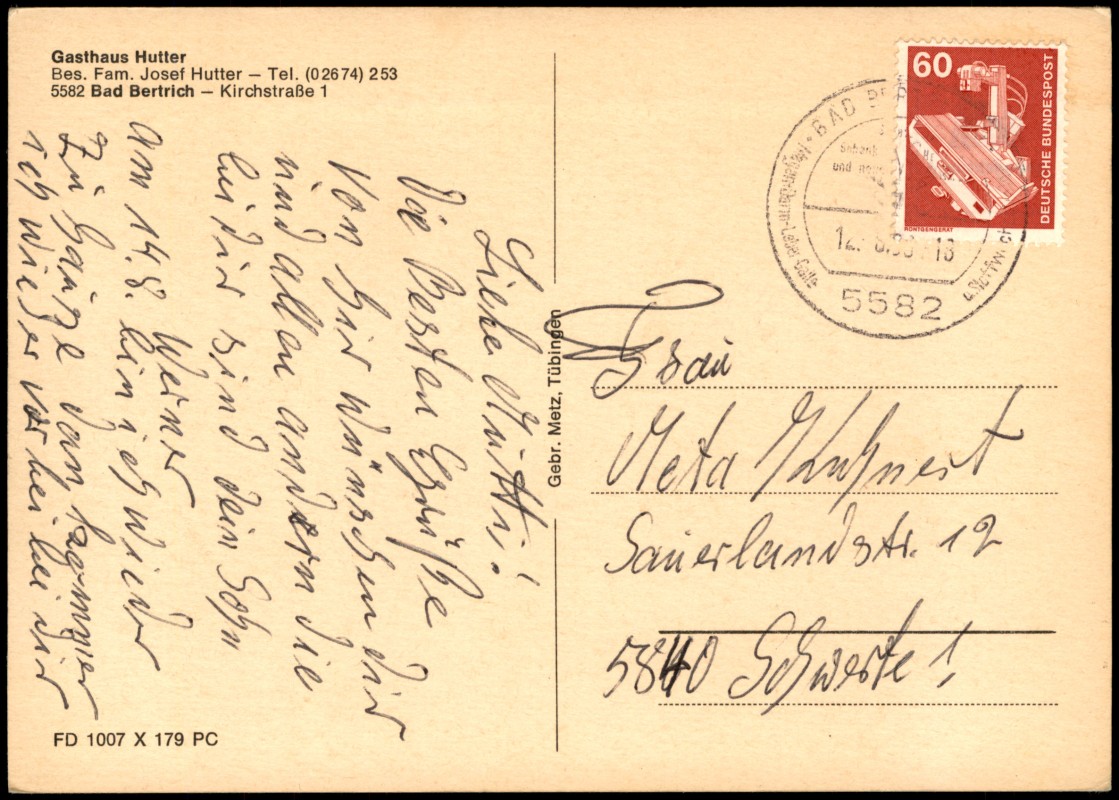 Gasthaus Hutter
Bes. Fam. Josef Hutter – Tel. (02674) 253
5582 Bad Bertrich – Kirchstraße 1
Liebe Mutti!
Die Besten Grüße
Von hir wünschen dir
und allen andern die
hir sind dein Sohn
Werner
am 14.8. bin ich wieder
zu Hause dann komme
ich wieder vorbei bei dir
FD 1007 X 179 PC
Gebr. Metz, Tübingen
60
DEUTSCHE BUNDESPOST
RÖNTGENGERÄT
BAD
und
Magen-Darm-Leber-Galle
5582
Frau
Meta Kuhnert
Sauerlandstr. 12
5840 Schwerte 1